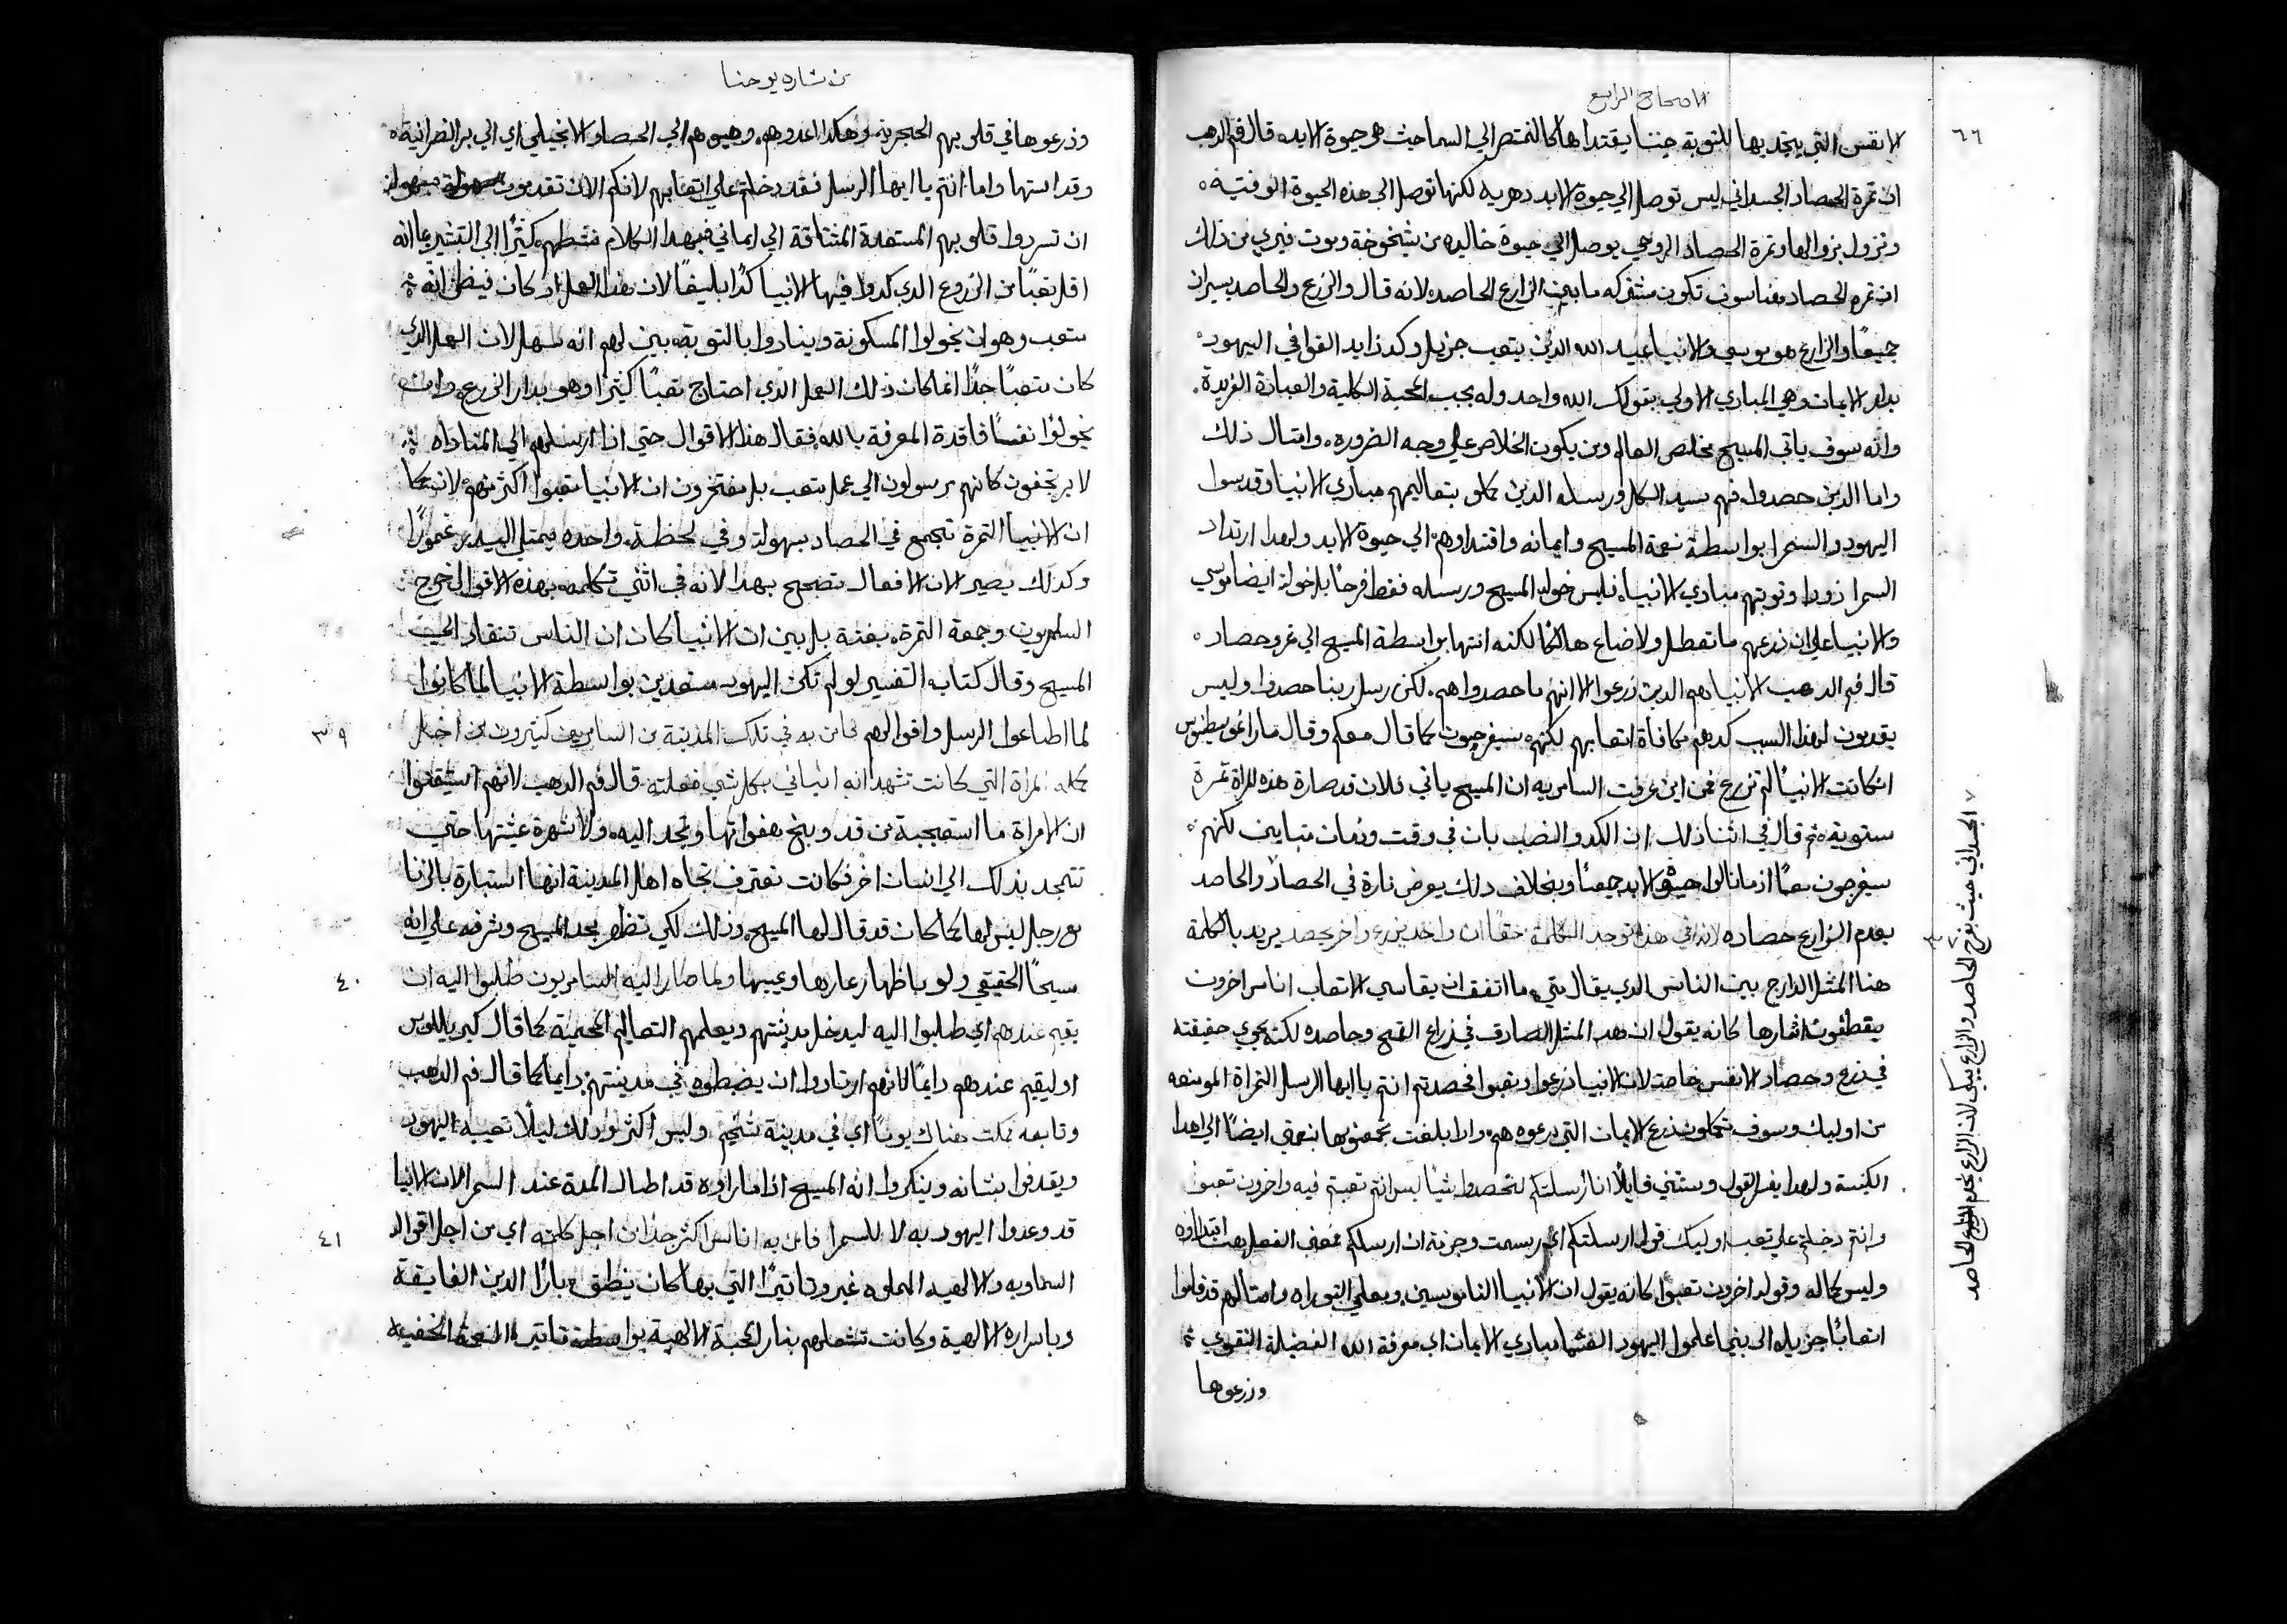 الاصحاح الرابع
٦٦
الانفس التي يجتدبها للتوبة حيننا يقتداها كالثمتص الي السما حيث هي حيوة الابد قال فم الدهب
ان ثمرة الحصاد الجسداني ليس توصل الي حيوة الابد دهريه لكنها توصل الي هذه الحيوة الوقتية
وتزول بزوالها وثمرة الحصاد الروحي يوصل الي حيوة خالده من شيخوخة وموت فيري من ذلك
ان ثمره الحصاد هنا سوف تكون مشتركه ما بين الزارع الحاصد لانه قال والزرع والحاصد يسران
جميعًا والزارع هو موسي والانبيا عبيد الله الدين بتعب جزيل وكد زايد القوا في اليهود
بدار الايمان وهي المبادي الاولي بقولك الله واحد وله يجب المحبة الكلية والعبادة الفريدة
وانه سوف ياتي المسيح مخلص العالم ومن يكون الخلاص علي وجه الضروره وامتال ذلك
واما الدين حصدوا فهم سيد الكل ورسله الدين كملو بتعاليمهم مبادي الانبيا وقدسوا
اليهود والسمرا بواسطة نعمة المسيح وايمانه واقتدادهم الي حيوة الابد ولهدا ارتداد
السمرا زورا وتوبتهم مبادي الانبيا فليس خوله المسيح ورسله فقط فرحًا بل خوله ايضا موسي
والانبيا علي ان زرعهم ما تعطل ولا ضاع هالكًا لكنه انتها بواسطة المسيح الي غر وحصاد
قال فم الدهب الانبيا هم الدين زرعوا الا انهم ما حصدوا هم لكن رسل ربنا حصدوا وليس
يقدمون لهذا السبب كدهم مكافاة اتعابهم لكنهم سيفرحون كما قال معكم وقال ماراغوسطينوس
ان كانت الانبيا لم تزرع فمن اين عرفت السامريه ان المسيح ياتي فلان قد صارة هذه المراة ثمرة
مستوية ثم قال في اثنا ذلك ان الكد والنصب بان في وقت وزمان متباين لكنهم
سيفرحون معًا اذ ما نالوا حيوة الابد جميعًا وبخلاف دلك يعرض تارة في الحصاد والحاصد
يعدم الزارع حصاده لانه في هدا توجد الكلمة حقًا ان واحد يزرع واخر يحصد يريد بالكلمة
هنا المثل الدارج بين الناس الدي يقال متي ما اتفق ان يقاسي الاتعاب اناس اخرون
يقطفون اثمارها كانه يقول ان هدا المثل الصادق في زراع القمح وحاصده لكنه يحوي حقيقته
في زرع وحصاد الانفس خاصة لان الانبيا زرعوا وتعبوا فحصدتم انتم يا ايها الرسل الثمراة الموسعه
من اوليك وسوف تكملون زرع الايمان التي زرعوه هم وادا بلغت تجمعوها بنعمتي ايضًا الي اهدا
الكنيسة ولهدا يفسر القول ويستني قايلًا انا ارسلتكم لتحصدوا شيًا ليس انتم تعبتم فيه واخرون تعبوا
وانتم دخلتم علي تعب اوليك قوله ارسلتكم اي رسمت وجزبة ان ارسلكم فمضي الفعل هنا ابتداوه
وليس كماله وقوله اخرون تعبوا كانه يقول ان الانبيا الناموسيين ومعلمي التوراه وامتالهم قد قبلوا
اتعابًا جزيله الي بنيا علموا اليهود الغشما مبادي الايمان اي معرفة الله الفضيلة التقوي
وزرعوها
الجسداني حيث يفرح الحاصد والزارع يبكي لان الزارع يخدم الحاصد
من بشاره يوحنا
وزرعوها في قلوبهم الحجرية وهكدا اعدوهم وهيوهم الي الحصاد الانجيلي اي الي بر النصرانية
وقد استها واما انتم يا ايها الرسل فقد دخلتم علي اتعابهم لانكم الان تقدمون بسهولة
ان تسردوا قلوبهم المستعدة المشتاقة الي ايماني فبهدا الكلام نشطهم كثيرًا الي التبشير بما انه
اقل تعبًا من الزروع الدي كدوا فيها الانبيا كدًا بليغًا لان هذا العمل اد كان فيظن انه
متعب وهو ان يحولوا المسكونة وينادوا بالتوبة بين لهم انه سهل لان العمل الدي
كان متعبًا جدًا انما كان ذلك العمل الدي احتاج تعبًا كثيرًا وهو بدار الزرع وان
يحولوا نفسًا فاقدة المعرفة بالله فقال هذا الاقوال حتي اذا ارسلهم الي المناداه
لا يرتجفون كانهم يرسلون الي عمل متعب بل مفتخرون ان الانبيا تعبوا اكثر منهم لان كما
ان الانبيا الثمرة تجمع في الحصاد بسهولة وفي لحظة واحده يمتلي البيدر غمورًا
وكدلك يصير الان الافعال تصحيح بهدا لانه في اثني تكلمه بهده الاقوال خرج
السامريون وجمعة الثمرة بغتة بل بين ان الانبيا كان ان الناس تنقاد الي
المسيح وقال كتاب التفسير لو لم تكن اليهود مستعدين بواسطة الانبيا لما كانوا
٣٩
لما اطاعوا الرسل واقوالهم فامن به في تلك المدينة من السامريين كثيرون من اجل
كلمة المراة التي كانت تشهد انه انباني بكل شي فعلته قال فم الدهب لانهم استيقنوا
ان الامراة ما استعجبة من قد وبخ هفواتها وتجد اليه ولا شهرة عيشتها حتي
تتمجد بذلك الي انسان اخر فكانت تعترف تجاه اهل المدينة انها استبارة بالزنا
مع رجل ليس لها كما كان قد قال لها المسيح وذلك لكي تظهر مجد المسيح وشرفه علي انه
٤٠
مسيحًا الحقيقي ولو باظهار عارها وعيبها ولما صار اليه السامريون طلبوا اليه ان
يقيم عندهم اي طلبوا اليه ليدخل مدينتهم ويعلمهم التعاليم المحيية كما قال كيرياللوس
او ليقيم عندهم دايمًا لانهم ارتادوا ان يضبطوه في مدينتهم دايمًا كما قال فم الدهب
وتابعه فمكت هناك يومين اي في مدينة شخيم وليس اكثر ودلك ليلًا تعيبه اليهود
ويقدفوا بشانه وينكروا انه المسيح اذا ما راوه قد اطال المدة عند السمرا لان الانبيا
٤١
قد وعدوا اليهود به لا للسمرا فامن به اناس اكثر جدًا من اجل كلمته اي من اجل اقواله
السماويه والالهيه المملوه غيره وتاثيرًا التي بها كان ينطق
وباسراره الالهية وكانت تشعلهم بنار المحبة الالهية بواسطة تاتير النعمة الخفية